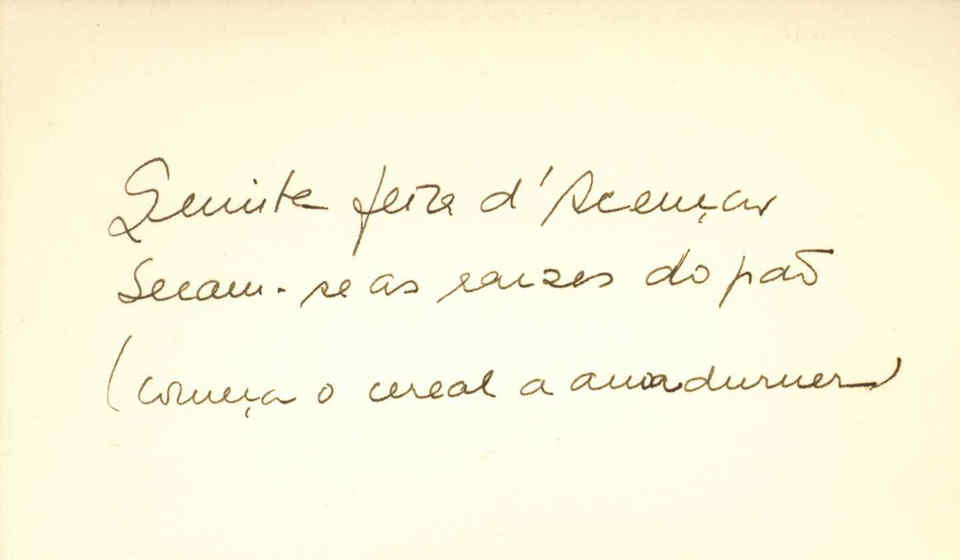 Quinta feira d'Ascenção
Secam-se as raízes do pão
(começa o cereal a amadurecer)